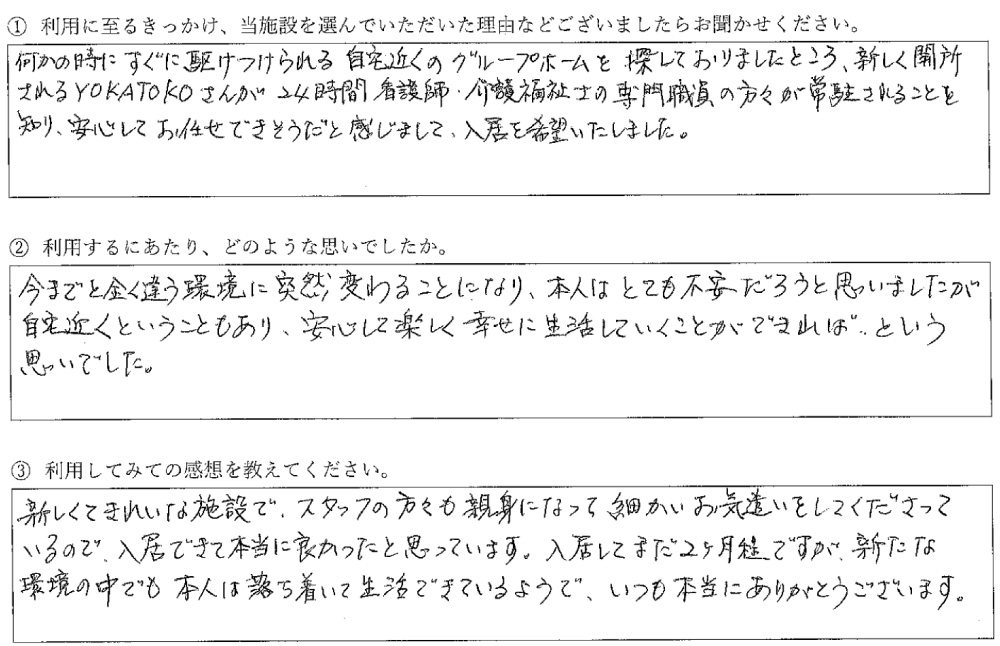 ① 利用に至るきっかけ、当施設を選んでいただいた理由などございましたらお聞かせください。
何かの時にすぐに駆けつけられる自宅近くのグループホームを探しておりましたところ、新しく開所
されるYOKATOKOさんが24時間看護師・介護福祉士の専門職員の方々が常駐されることを
知り、安心してお任せできそうだと感じまして、入居を希望いたしました。
② 利用するにあたり、どのような思いでしたか。
今までと全く違う環境に突然変わることになり、本人はとても不安だろうと思いましたが
自宅近くということもあり、安心して楽しく幸せに生活していくことができれば‥という
思いでした。
③ 利用してみての感想を教えてください。
新しくてきれいな施設で、スタッフの方々も親身になって細かいお気遣いをしてくださって
いるので、入居できて本当に良かったと思っています。入居してまだ2ヶ月程ですが、新たな
環境の中でも本人は落ち着いて生活できているようで、いつも本当にありがとうございます。